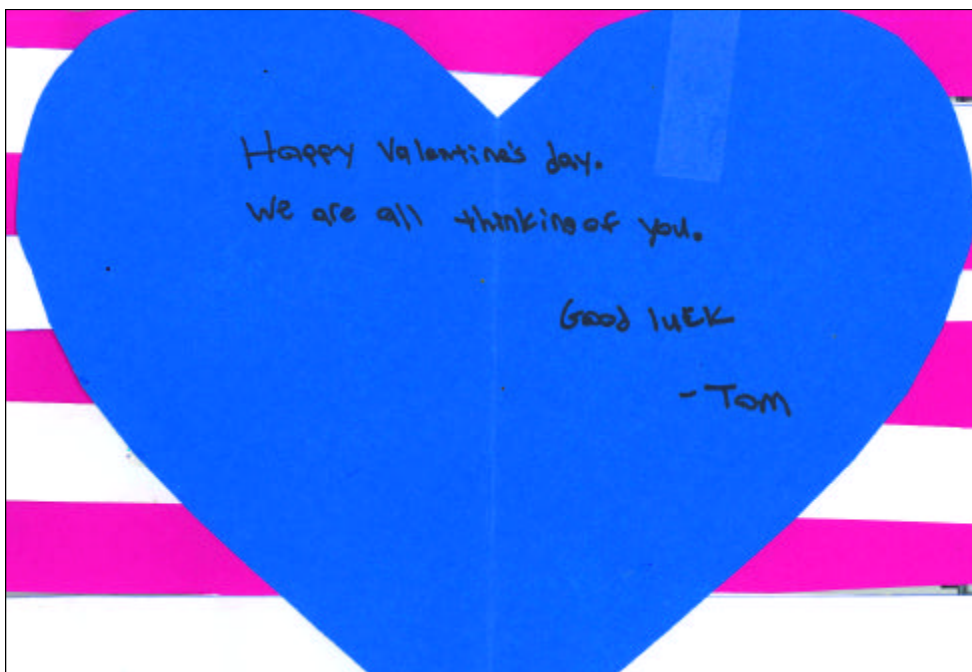 Happy Valentine's day.
We are all thinking of you.
Good luck
-Tom